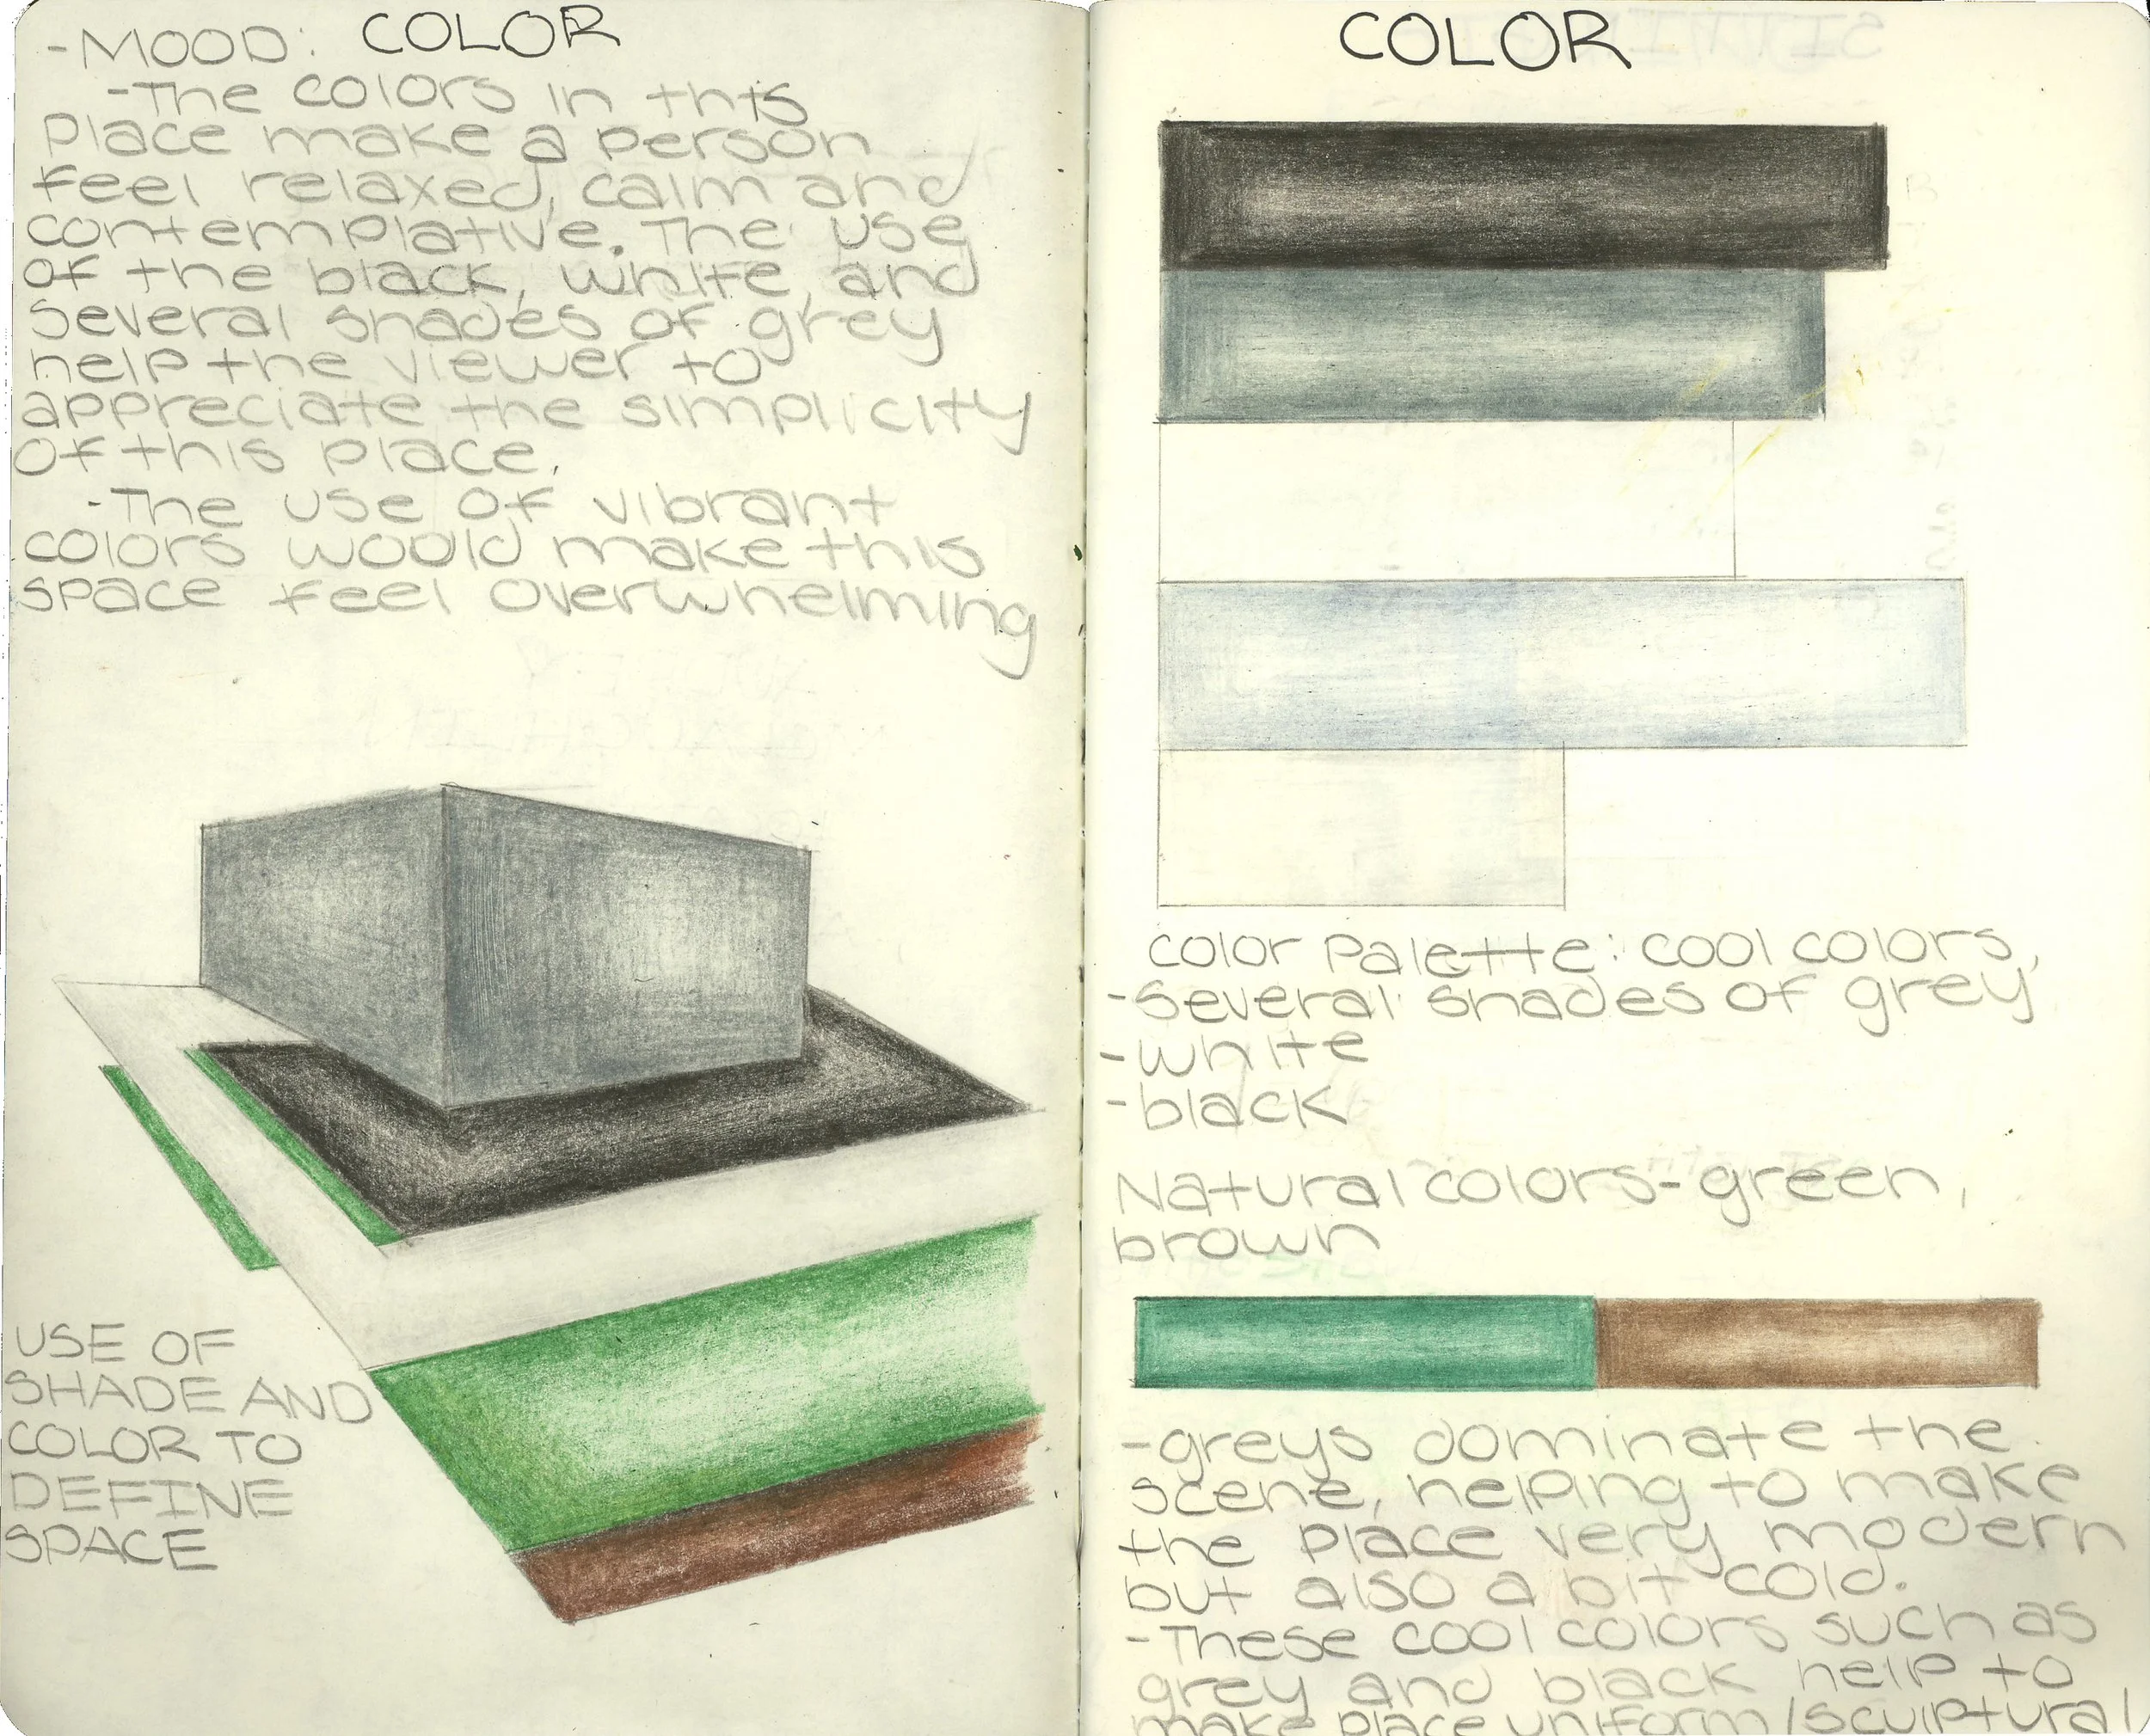 COLOR
-MOOD:
-The colors in this
Place make a person
feel relaxed, calm and
contemplative. The use
of the black, white, and
several shades of grey
help the viewer to
appreciate the simplicity
of this place.
-The use of vibrant
colors would make this
space feel overwhelming
USE OF
SHADE AND
COLOR TO
DEFINE
SPACE
COLOR
Color Palette: cool colors,
-several shades of grey
-white
-black
Natural colors-green,
brown
-greys dominate the
scene, helping to make
the place very modern
but also a bit cold.
-These cool colors such as
grey and black help to
make place uniform/sculptural